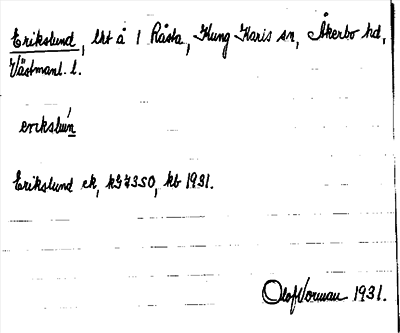 Erikslund, lht å 1 Råsta, Kung Karls sn, Åkerbo hd,
Västmanl. l.
erikslún
Erikslund ek, kG7350, kb 1931.
Olof Norman 1931.